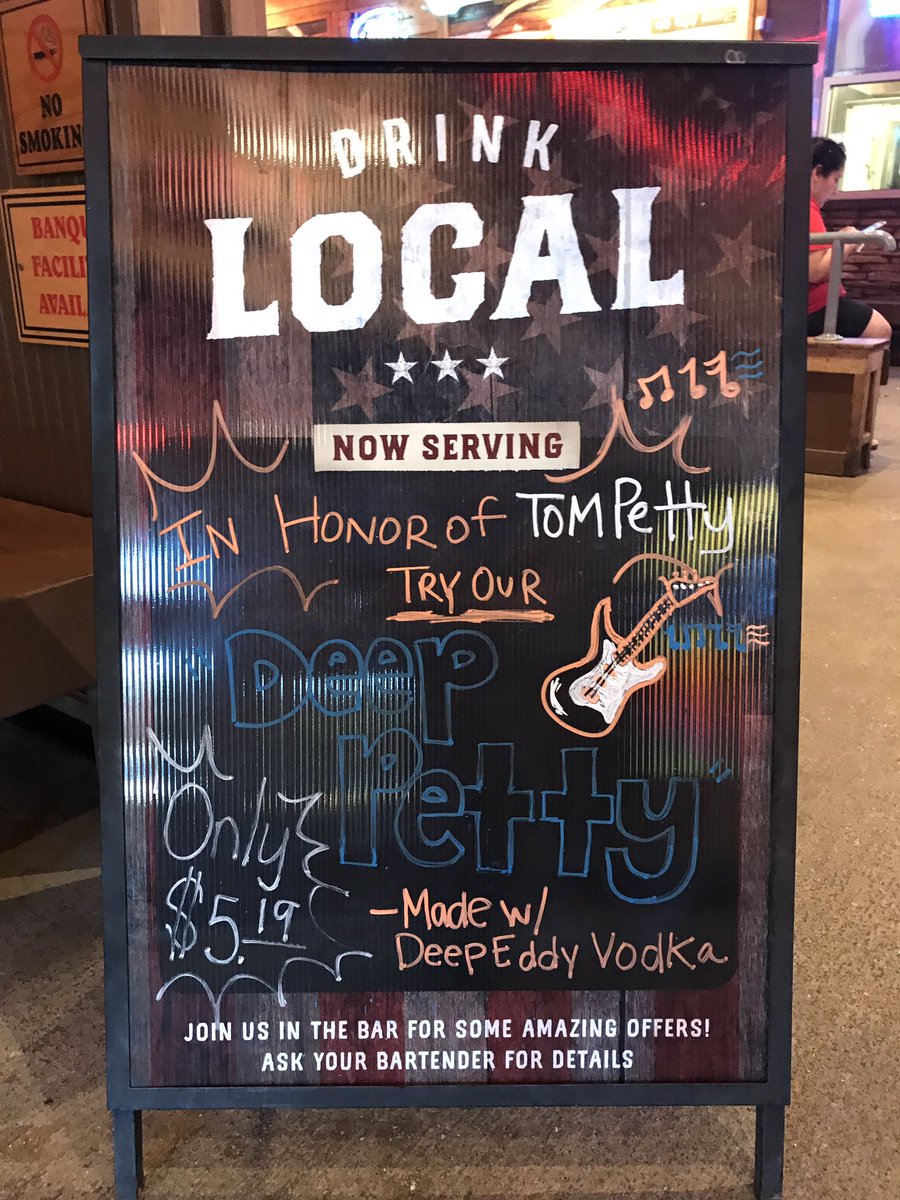 NO
SMOKIN
BANQU
FACILI
AVAIL
DRINK
LOCAL
NOW SERVING
IN HONOR of TOM Petty
TRY OUR
"Deep
Petty"
Only
$5.19
-Made w/
Deep Eddy Vodka
JOIN US IN THE BAR FOR SOME AMAZING OFFERS!
ASK YOUR BARTENDER FOR DETAILS